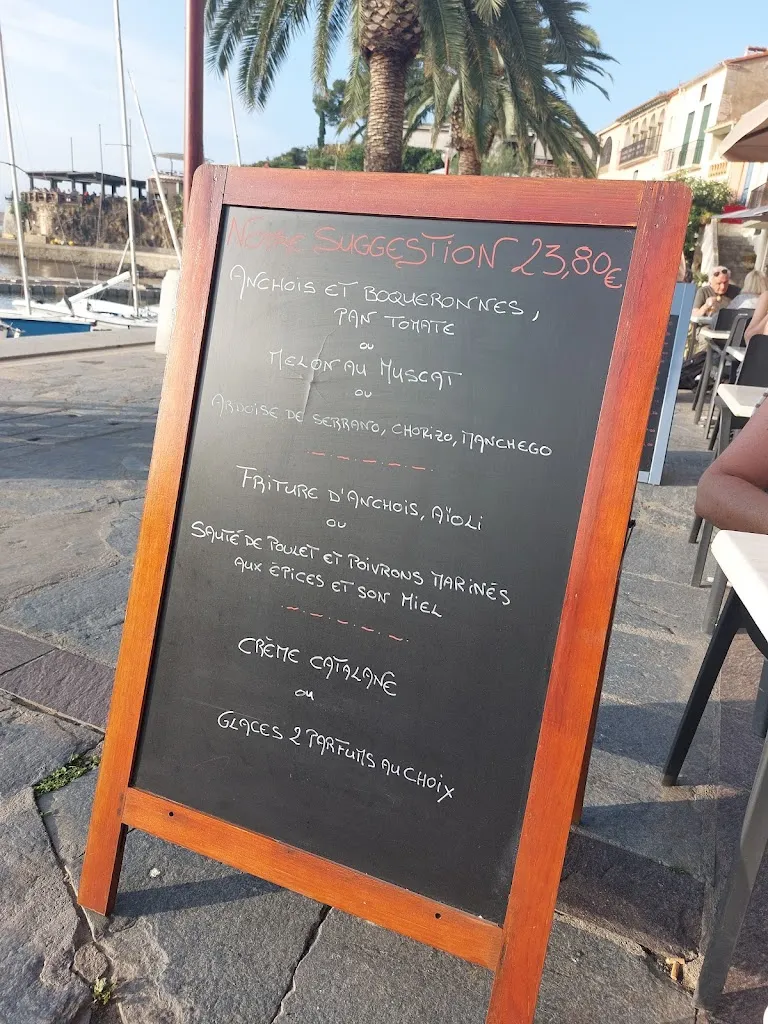 NOTRE SUGGESTION 23,80€
ANCHOIS ET BOQUERONNES,
PAN TOMATE
ou
MELON AU MUSCAT
ou
ARDOISE DE SERRANO, CHORIZO, MANCHEGO
FRITURE D'ANCHOIS, AÏOLI
ou
SAUTÉ DE POULET ET POIVRONS MARINÉS
AUX ÉPICES ET SON MIEL
CRÈME CATALANE
ou
GLACES 2 PARFUMS AU CHOIX